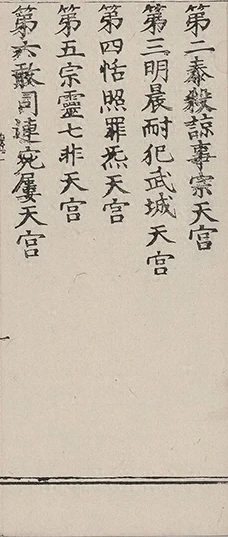 第二泰殺諒事宗天宮
第三明晨耐犯武城天宮
第四恬照罪炁天宮
第五宗靈七非天宮
第六敢司連宛屢天宮